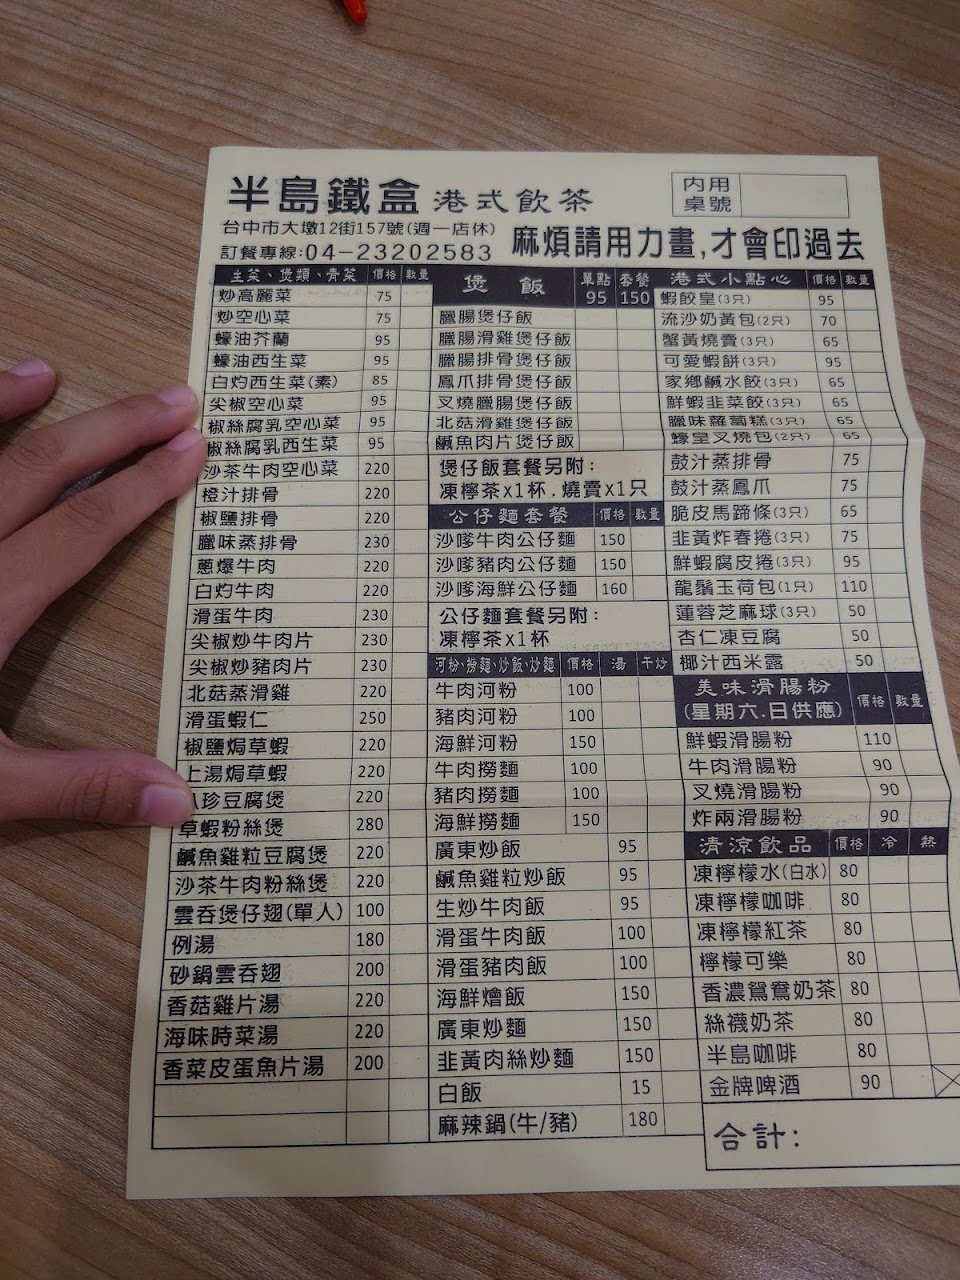 半島鐵盒 港式飲茶
內用
桌號
台中市大墩12街157號(週一店休)
訂餐專線:04-23202583
麻煩請用力畫,才會印過去
主菜、煲類、青菜 價格 數量
炒高麗菜 75
炒空心菜 75
蠔油芥蘭 95
蠔油西生菜 95
白灼西生菜(素) 85
尖椒空心菜 95
椒絲腐乳空心菜 95
椒絲腐乳西生菜 95
沙茶牛肉空心菜 220
橙汁排骨 220
椒鹽排骨 220
臘味蒸排骨 230
蔥爆牛肉 220
白灼牛肉 220
滑蛋牛肉 230
尖椒炒牛肉片 230
尖椒炒豬肉片 230
北菇蒸滑雞 220
滑蛋蝦仁 250
椒鹽焗草蝦 220
上湯焗草蝦 220
八珍豆腐煲 220
草蝦粉絲煲 280
鹹魚雞粒豆腐煲 220
沙茶牛肉粉絲煲 220
雲吞煲仔翅(單人) 100
例湯 180
砂鍋雲吞翅 200
香菇雞片湯 220
海味時菜湯 220
香菜皮蛋魚片湯 200
煲 飯 單點 95 套餐 150
臘腸煲仔飯
臘腸滑雞煲仔飯
臘腸排骨煲仔飯
鳳爪排骨煲仔飯
叉燒臘腸煲仔飯
北菇滑雞煲仔飯
鹹魚肉片煲仔飯
煲仔飯套餐另附:
凍檸茶x1杯.燒賣x1只
公仔麵套餐 價格 數量
沙嗲牛肉公仔麵 150
沙嗲豬肉公仔麵 150
沙嗲海鮮公仔麵 160
公仔麵套餐另附:
凍檸茶x1杯
河粉、撈麵、炒飯、炒麵 價格 湯 干炒
牛肉河粉 100
豬肉河粉 100
海鮮河粉 150
牛肉撈麵 100
豬肉撈麵 100
海鮮撈麵 150
廣東炒飯 95
鹹魚雞粒炒飯 95
生炒牛肉飯 95
滑蛋牛肉飯 100
滑蛋豬肉飯 100
海鮮燴飯 150
廣東炒麵 150
韭黃肉絲炒麵 150
白飯 15
麻辣鍋(牛/豬) 180
港式小點心 價格 數量
蝦餃皇(3只) 95
流沙奶黃包(2只) 70
蟹黃燒賣(3只) 65
可愛蝦餅(3只) 95
家鄉鹹水餃(3只) 65
鮮蝦韭菜餃(3只) 65
臘味蘿蔔糕(3只) 65
蠔皇叉燒包(2只) 65
鼓汁蒸排骨 75
鼓汁蒸鳳爪 75
脆皮馬蹄條(3只) 65
韭黃炸春捲(3只) 75
鮮蝦腐皮捲(3只) 95
龍鬚玉荷包(1只) 110
蓮蓉芝麻球(3只) 50
杏仁凍豆腐 50
椰汁西米露 50
美味滑腸粉
(星期六.日供應) 價格 數量
鮮蝦滑腸粉 110
牛肉滑腸粉 90
叉燒滑腸粉 90
炸兩滑腸粉 90
清涼飲品 價格 冷 熱
凍檸檬水(白水) 80
凍檸檬咖啡 80
凍檸檬紅茶 80
檸檬可樂 80
香濃鴛鴦奶茶 80
絲襪奶茶 80
半島咖啡 80
金牌啤酒 90
合計: